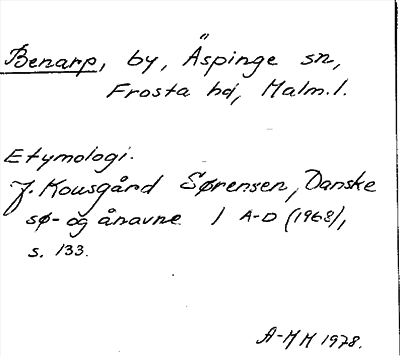 Benarp, by, Äspinge sn,
Frosta hd, Malm.l.
Etymologi.
J. Kousgård Sørensen, Danske
sø- og ånavne 1 A-D (1968),
s. 133.
A-MH 1978.